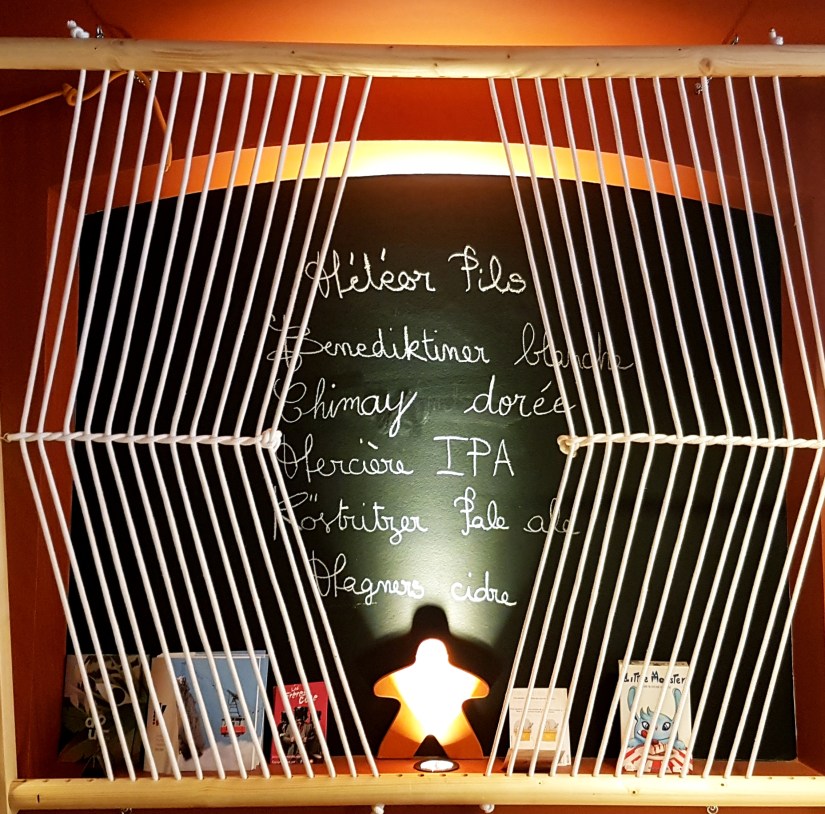 Météor Pils
Benediktiner blanche
Chimay dorée
Mercière IPA
Köstritzer Pale ale
Magners cidre
Little Monster